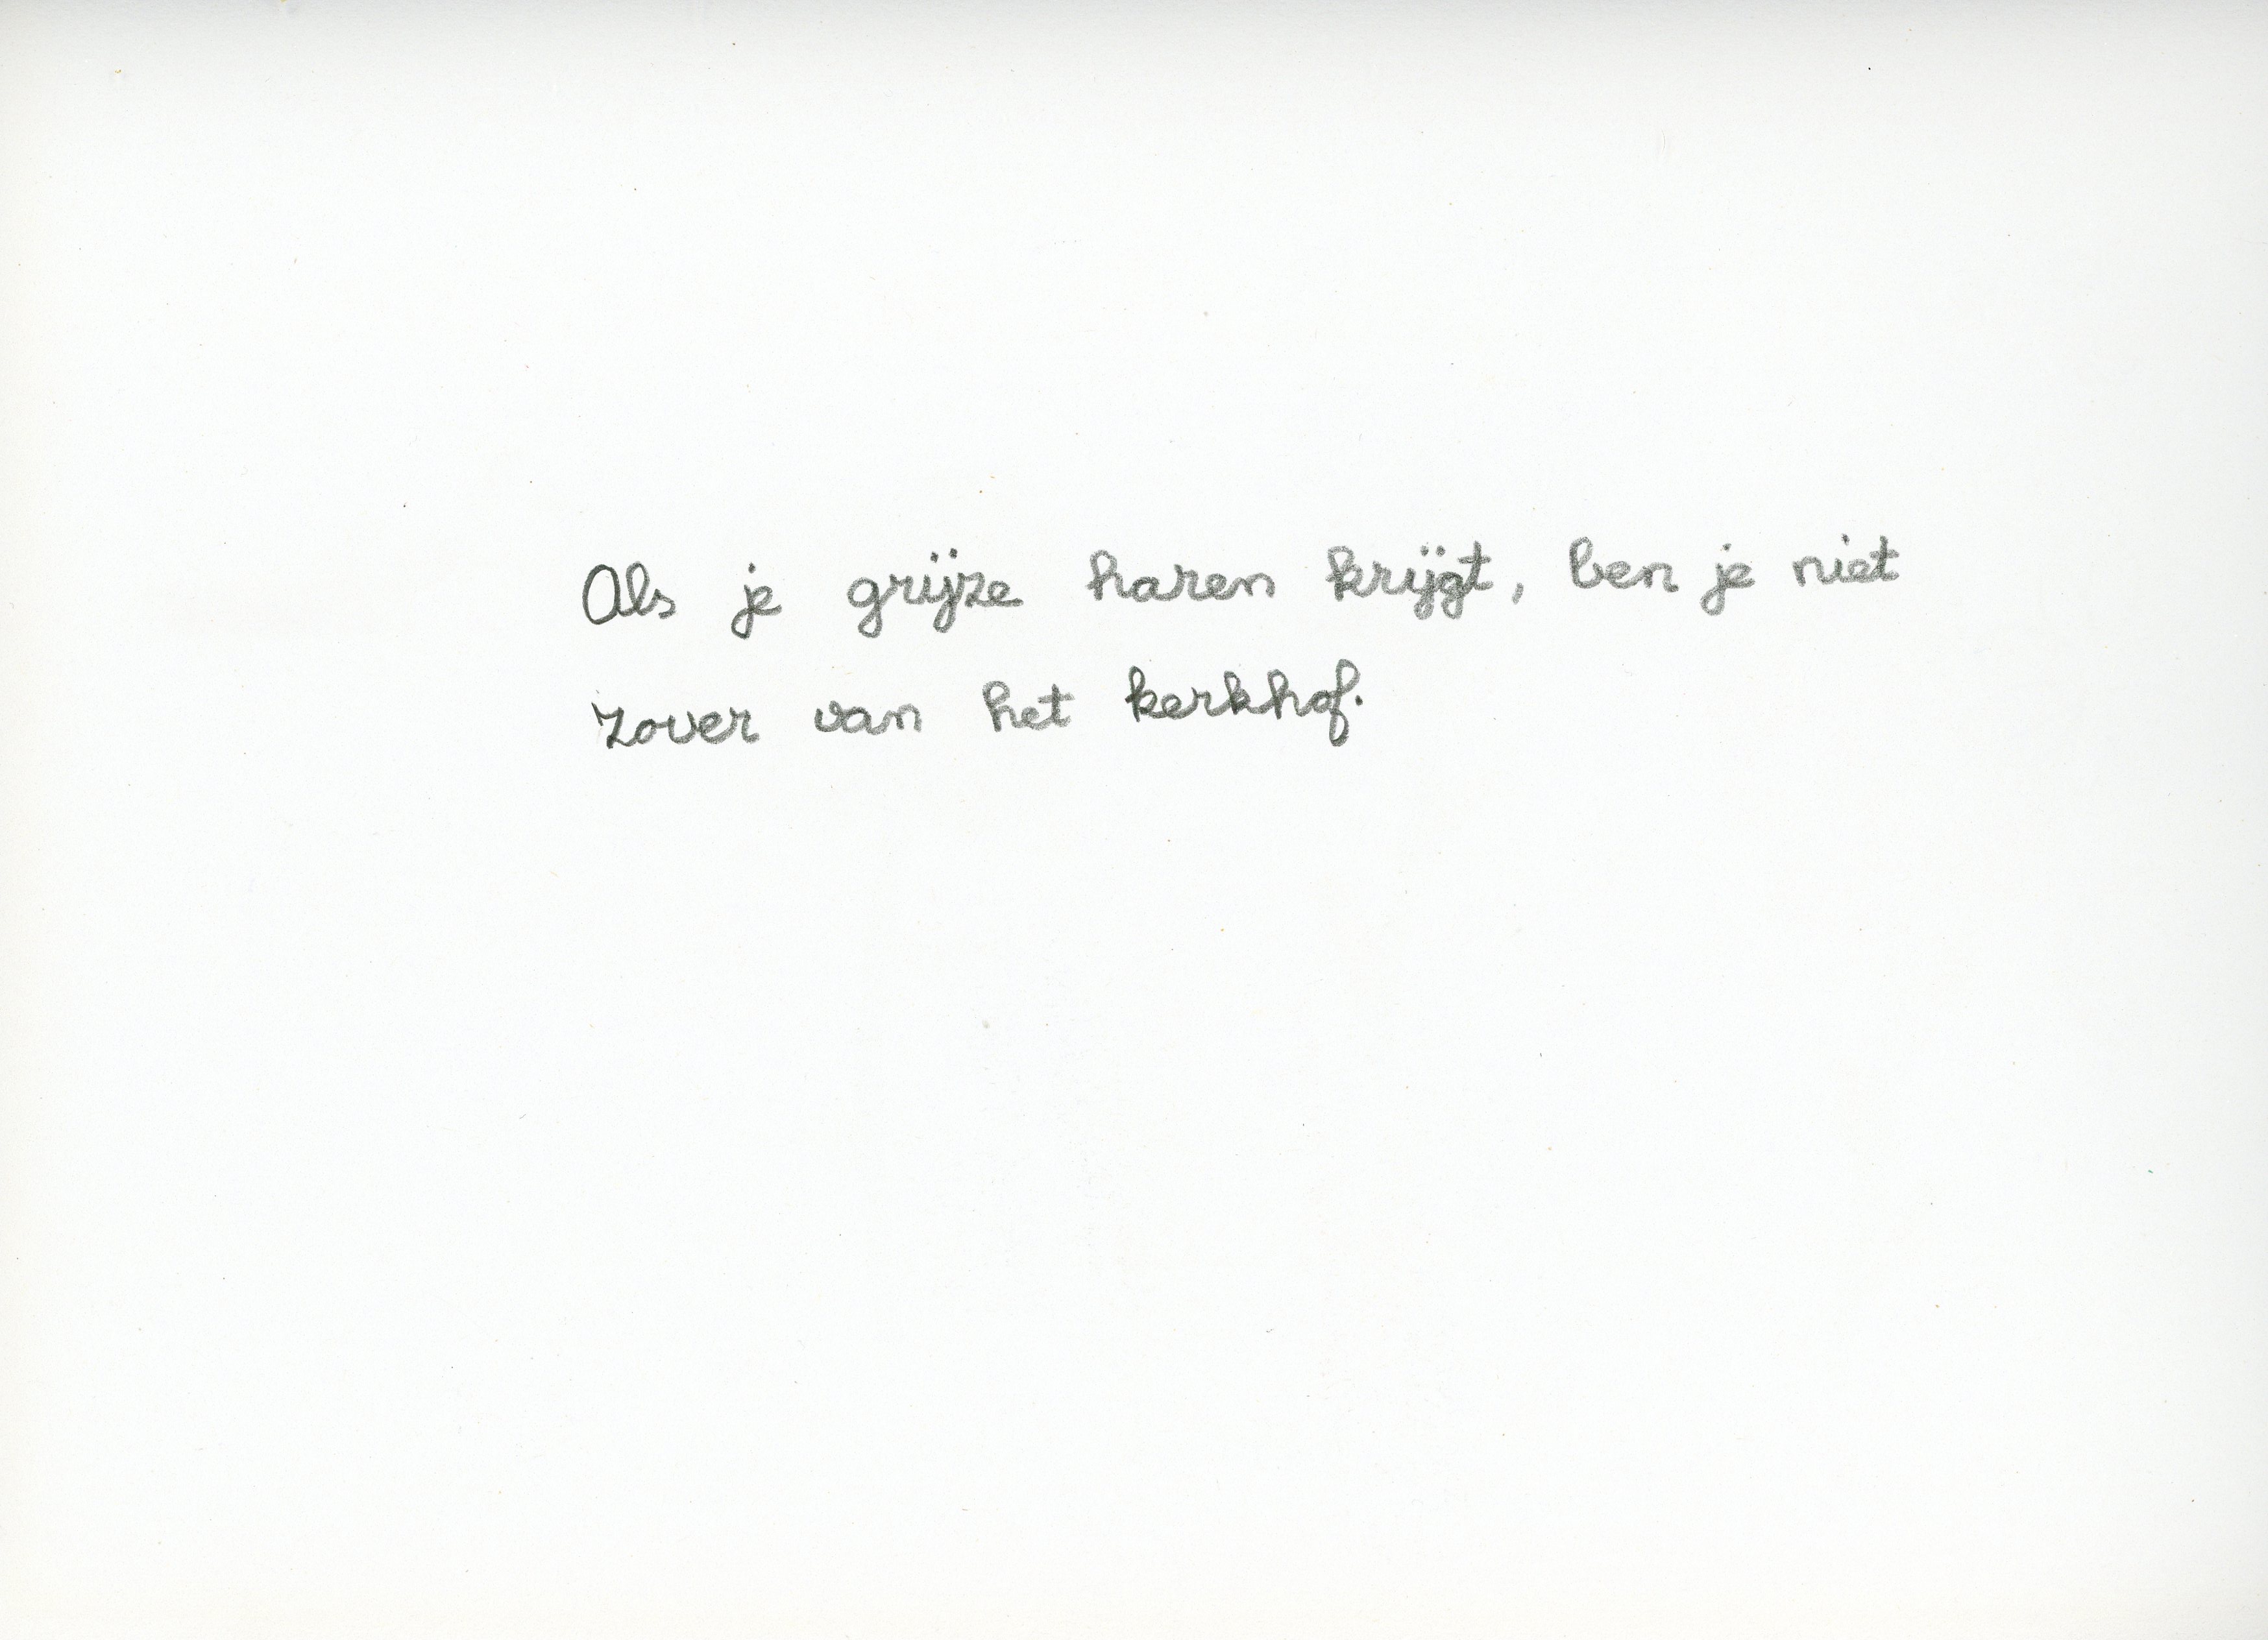 Als je grijze haren krijgt, ben je niet
zover van het kerkhof.